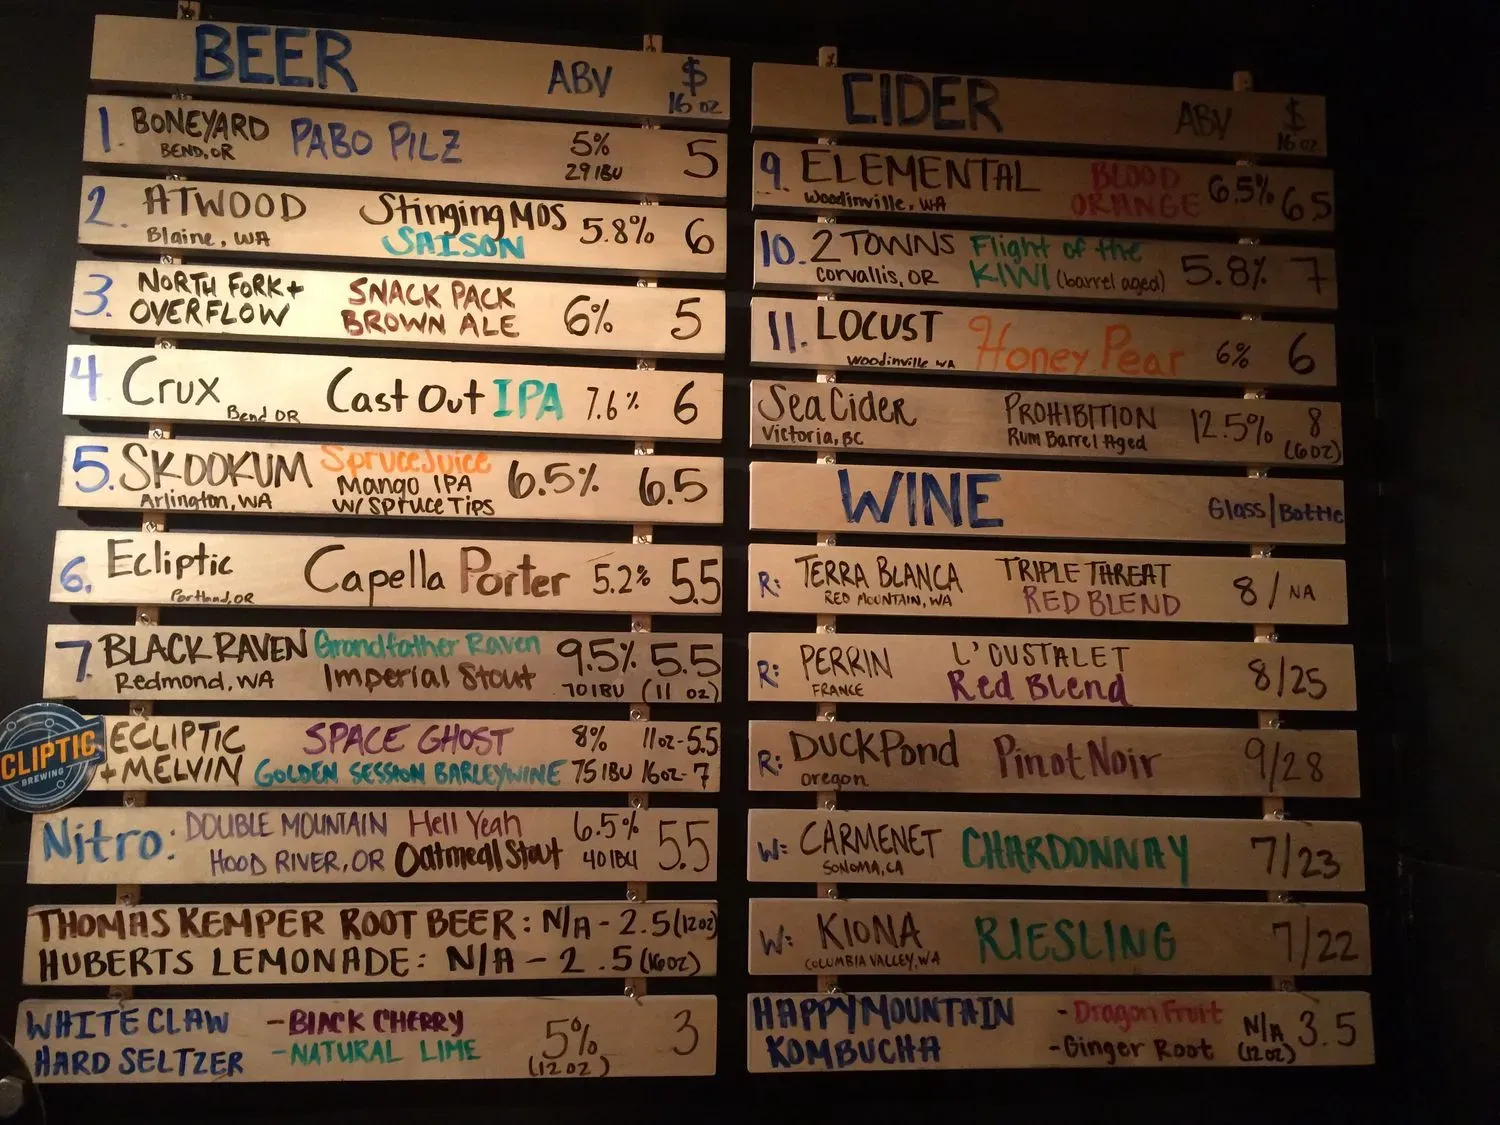 BEER ABV $ 16 oz
1. BONEYARD PABO PILZ 5% 5
BEND, OR 29 IBU
2. ATWOOD Stinging MOS 5.8% 6
Blaine, WA SAISON
3. NORTH FORK + SNACK PACK 6% 5
OVERFLOW BROWN ALE
4 Crux Cast Out IPA 7.6% 6
Bend OR
5. SKOOKUM Spruce Juice 6.5% 6.5
Arlington, WA Mango IPA
W/ Spruce Tips
6. Ecliptic Capella Porter 5.2% 5.5
Portland, OR
7. BLACK RAVEN Grandfather Raven 9.5% 5.5
Redmond, WA Imperial Stout 70 IBU (11 oz)
CLIPTIC
BREWING
ECLIPTIC SPACE GHOST 8% 11oz-5.5
+ MELVIN GOLDEN SESSION BARLEYWINE 75 IBU 16oz-7
Nitro: DOUBLE MOUNTAIN Hell Yeah 6.5% 5.5
HOOD RIVER, OR Oatmeal Stout 40 IBU
THOMAS KEMPER ROOT BEER: N/A - 2.5 (12oz)
HUBERTS LEMONADE: N/A - 2.5 (16oz)
WHITE CLAW - BLACK CHERRY 5% 3
HARD SELTZER - NATURAL LIME (12 oz)
CIDER ABV $ 16 oz
9. ELEMENTAL BLOOD 6.5% 6.5
Woodinville, WA ORANGE
10. 2 TOWNS Flight of the 5.8% 7
Corvallis, OR KIWI (barrel aged)
11. LOCUST Honey Pear 6% 6
Woodinville WA
Sea Cider PROHIBITION 12.5% 8
Victoria, BC Rum Barrel Aged (6oz)
WINE Glass/Bottle
R: TERRA BLANCA TRIPLE THREAT 8/NA
RED MOUNTAIN, WA RED BLEND
R: PERRIN L'OUSTALET 8/25
FRANCE Red Blend
R: DUCK POND Pinot Noir 9/28
Oregon
W: CARMENET CHARDONNAY 7/23
SONOMA, CA
W: KIONA RIESLING 7/22
COLUMBIA VALLEY, WA
HAPPY MOUNTAIN - Dragon Fruit N/A 3.5
KOMBUCHA - Ginger Root (12oz)